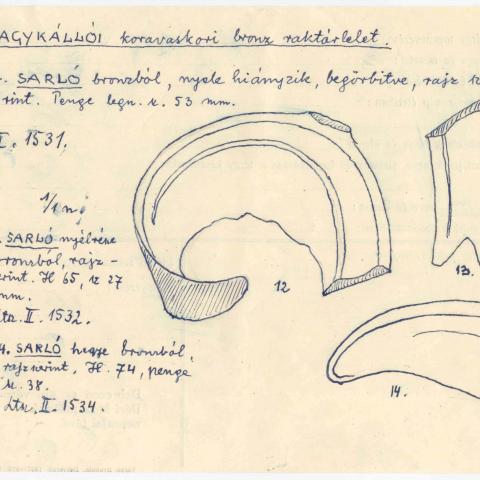 AGYKÁLLÓI koravaskori bronz raktárlelet.
SARLÓ bronzból, nyele hiányzik, begörbítve, rajz sz
rint. Penge legn. sz. 53 mm.
I. 1531.
1/1 n
SARLÓ nyélrésze
bronzból, rajz-
rint. H 65, sz 27
mm.
Ltsz. II. 1532.
4. SARLÓ hegye bronzból,
rajz szerint. H. 74, penge
sz. 38.
Ltsz. II. 1534.
12
13.
14.